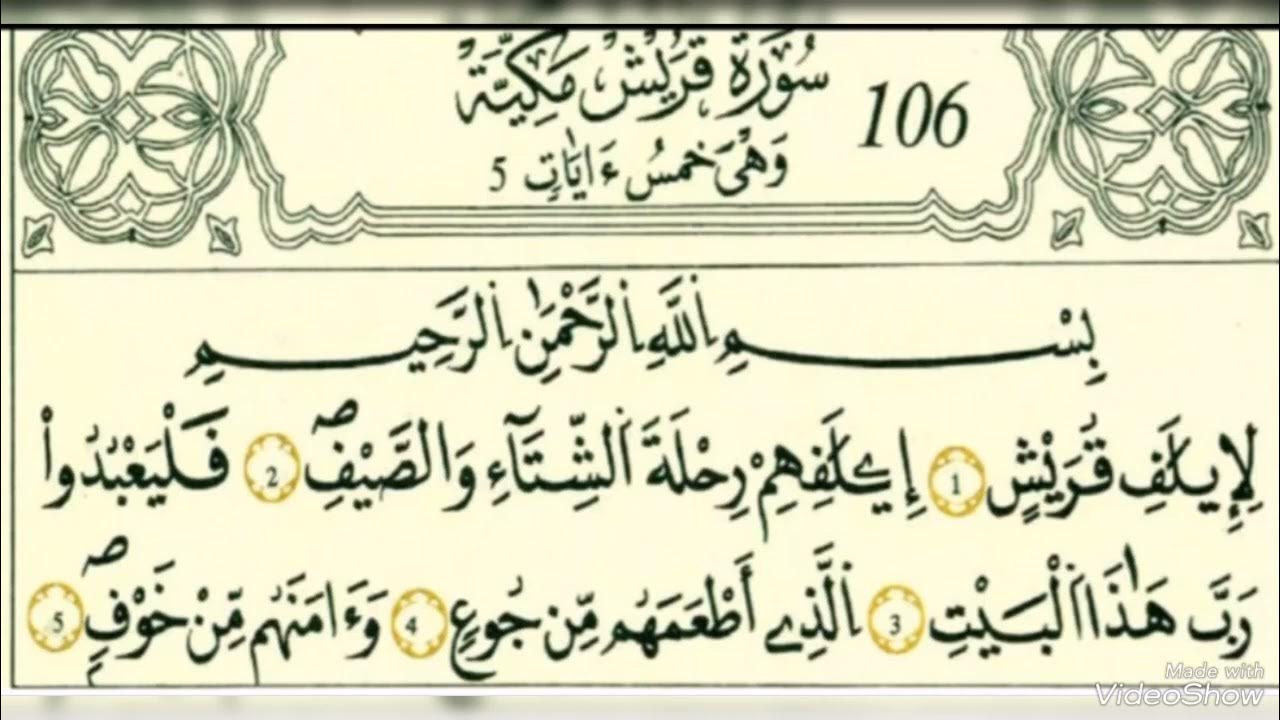 سُورَةُ قُرَيْشٍ مَكِّيَّةٌ
106
وَهْىَ خَمْسُ ءَايَاتٍ 5
بِسْمِ اِ۬للَّهِ اِ۬لرَّحْمَٰنِ اِ۬لرَّحِيمِ
لِإِيلَٰفِ قُرَيْشٍ 1 إِۦلَٰفِهِمْ رِحْلَةَ اَ۬لشِّتَآءِ وَالصَّيْفِ صۖ 2 فَلْيَعْبُدُواْ
رَبَّ هَٰذَا اَ۬لْبَيْتِ 3 اِ۬لَّذِے أَطْعَمَهُم مِّن جُوعٍ 4 وَءَامَنَهُم مِّنْ خَوْفٍ صۖ 5
Made with
VideoShow